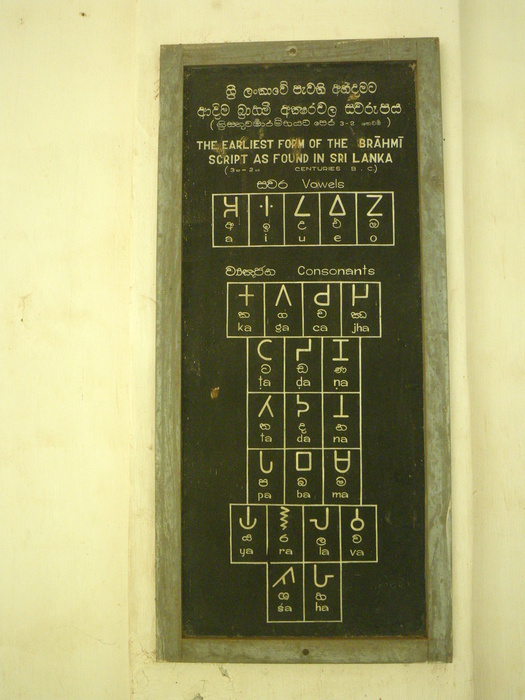 ශ්‍රී ලංකාවේ පැවති
ආදිම බ්‍රාහ්මී අක්ෂරවල ස්වරූපය
THE EARLIEST FORM OF THE BRĀHMĪ
SCRIPT AS FOUND IN SRI LANKA
CENTURIES B.C.)
ස්වර Vowels
𑀅 𑀇 𑀉 𑀏 𑀑
අ ඉ උ එ ඔ
a i u e o
ව්‍යඤ්ජන Consonants
𑀓 𑀕 𑀘 𑀛
ක ග ච ඣ
ka ga ca jha
𑀝 𑀟 𑀡
ට ඩ ණ
ṭa ḍa ṇa
𑀢 𑀤 𑀦
ත ද න
ta da na
𑀧 𑀩 𑀫
ප බ ම
pa ba ma
𑀬 𑀭 𑀮 𑀯
ය ර ල ව
ya ra la va
𑀰 𑀳
ශ හ
śa ha